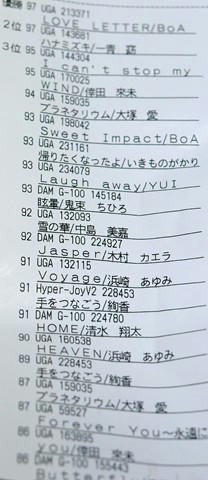 優勝 97 UGA 213371
LOVE LETTER/BoA
2位 97 UGA 143681
ハナミズキ/一青 窈
3位 95 UGA 144304
I can't stop my
95 UGA 170025
WIND/倖田 來未
94 UGA 159035
プラネタリウム/大塚 愛
93 UGA 94042
Sweet Impact/BoA
93 UGA 231161
帰りたくなったよ/いきものがかり
93 UGA 234079
Laugh away/YUI
93 DAM G-100 145184
眩暈/鬼束 ちひろ
92 UGA 132093
雪の華/中島 美嘉
92 DAM G-100 224927
Jasper/木村 カエラ
91 UGA 132115
Voyage/浜崎 あゆみ
91 Hyper-JoyV2 228453
手をつなごう/絢香
91 DAM G-100 224780
HOME/清水 翔太
90 UGA 160538
HEAVEN/浜崎 あゆみ
89 UGA 228453
手をつなごう/絢香
87 UGA 159035
プラネタリウム/大塚 愛
87 UGA 59527
Forever You〜永遠に
86 UGA 163895
you/倖田 來未
86 DAM G-100 155443